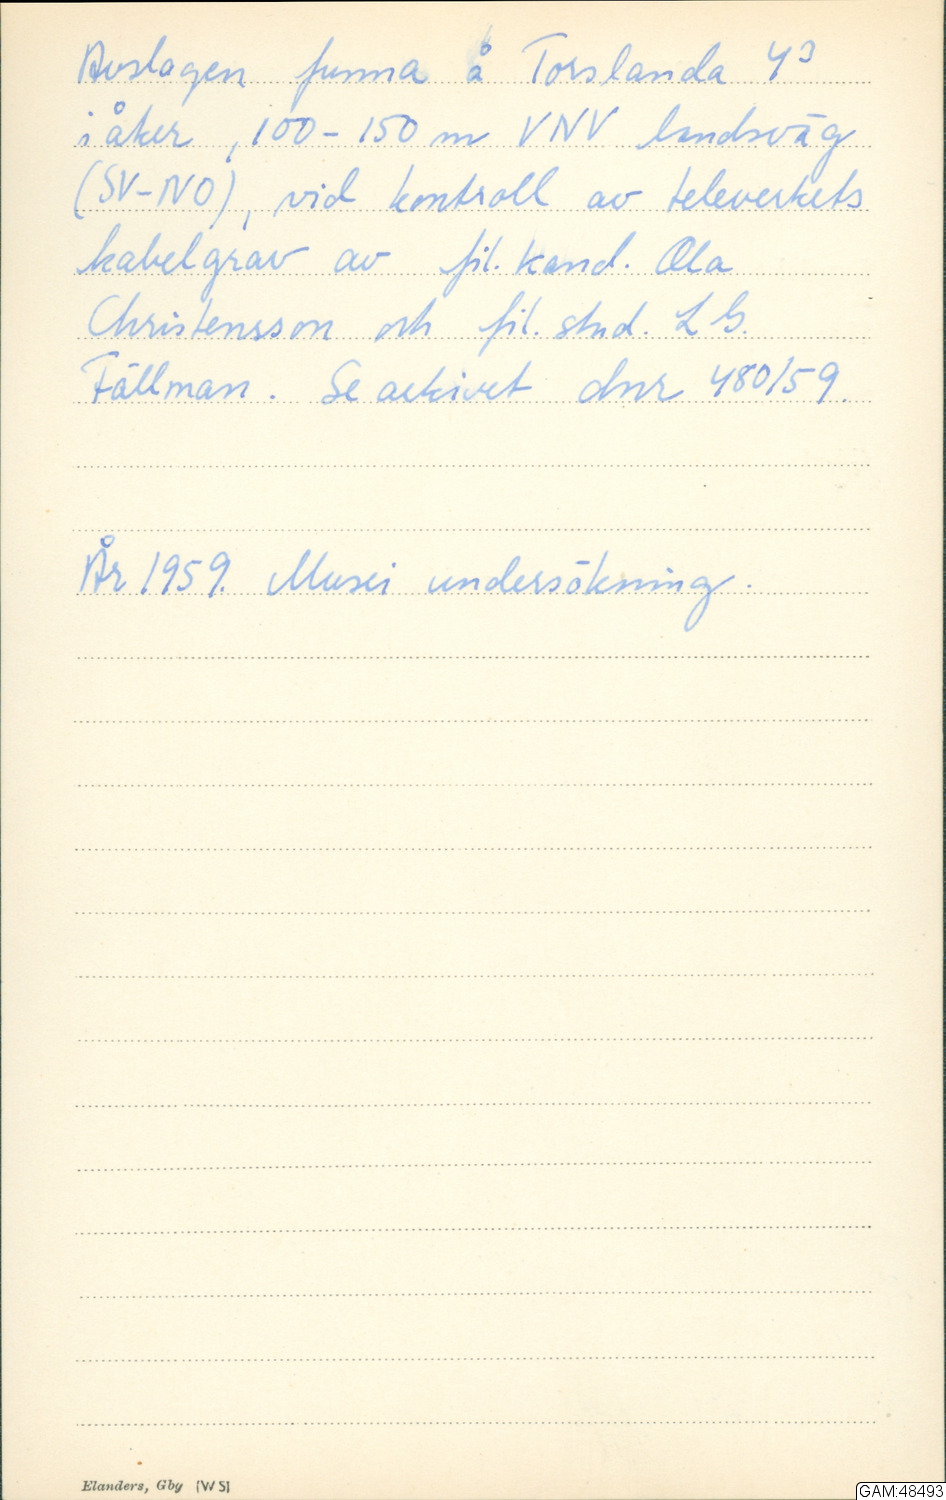 Avslagen funna å Torslanda 4³
i åker, 100-150 m VNV landsväg
(SV-NO), vid kontroll av televerkets
kabelgrav av fil. kand. Ola
Christensson och fil. stud. L G.
Fällman. Se arkivet dnr 480/59.
År 1959. Musei undersökning.
Elanders, Gby (WS)
GAM:48493